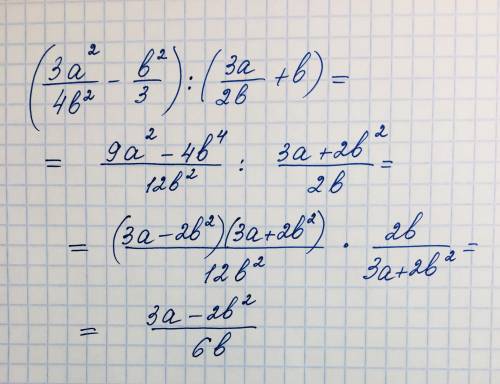 (3a²/4b² − b²/3) : (3a/2b + b) =
= (9a² − 4b⁴)/12b² : (3a + 2b²)/2b =
= (3a − 2b²)(3a + 2b²)/12b² · 2b/(3a + 2b²) =
= (3a − 2b²)/6b